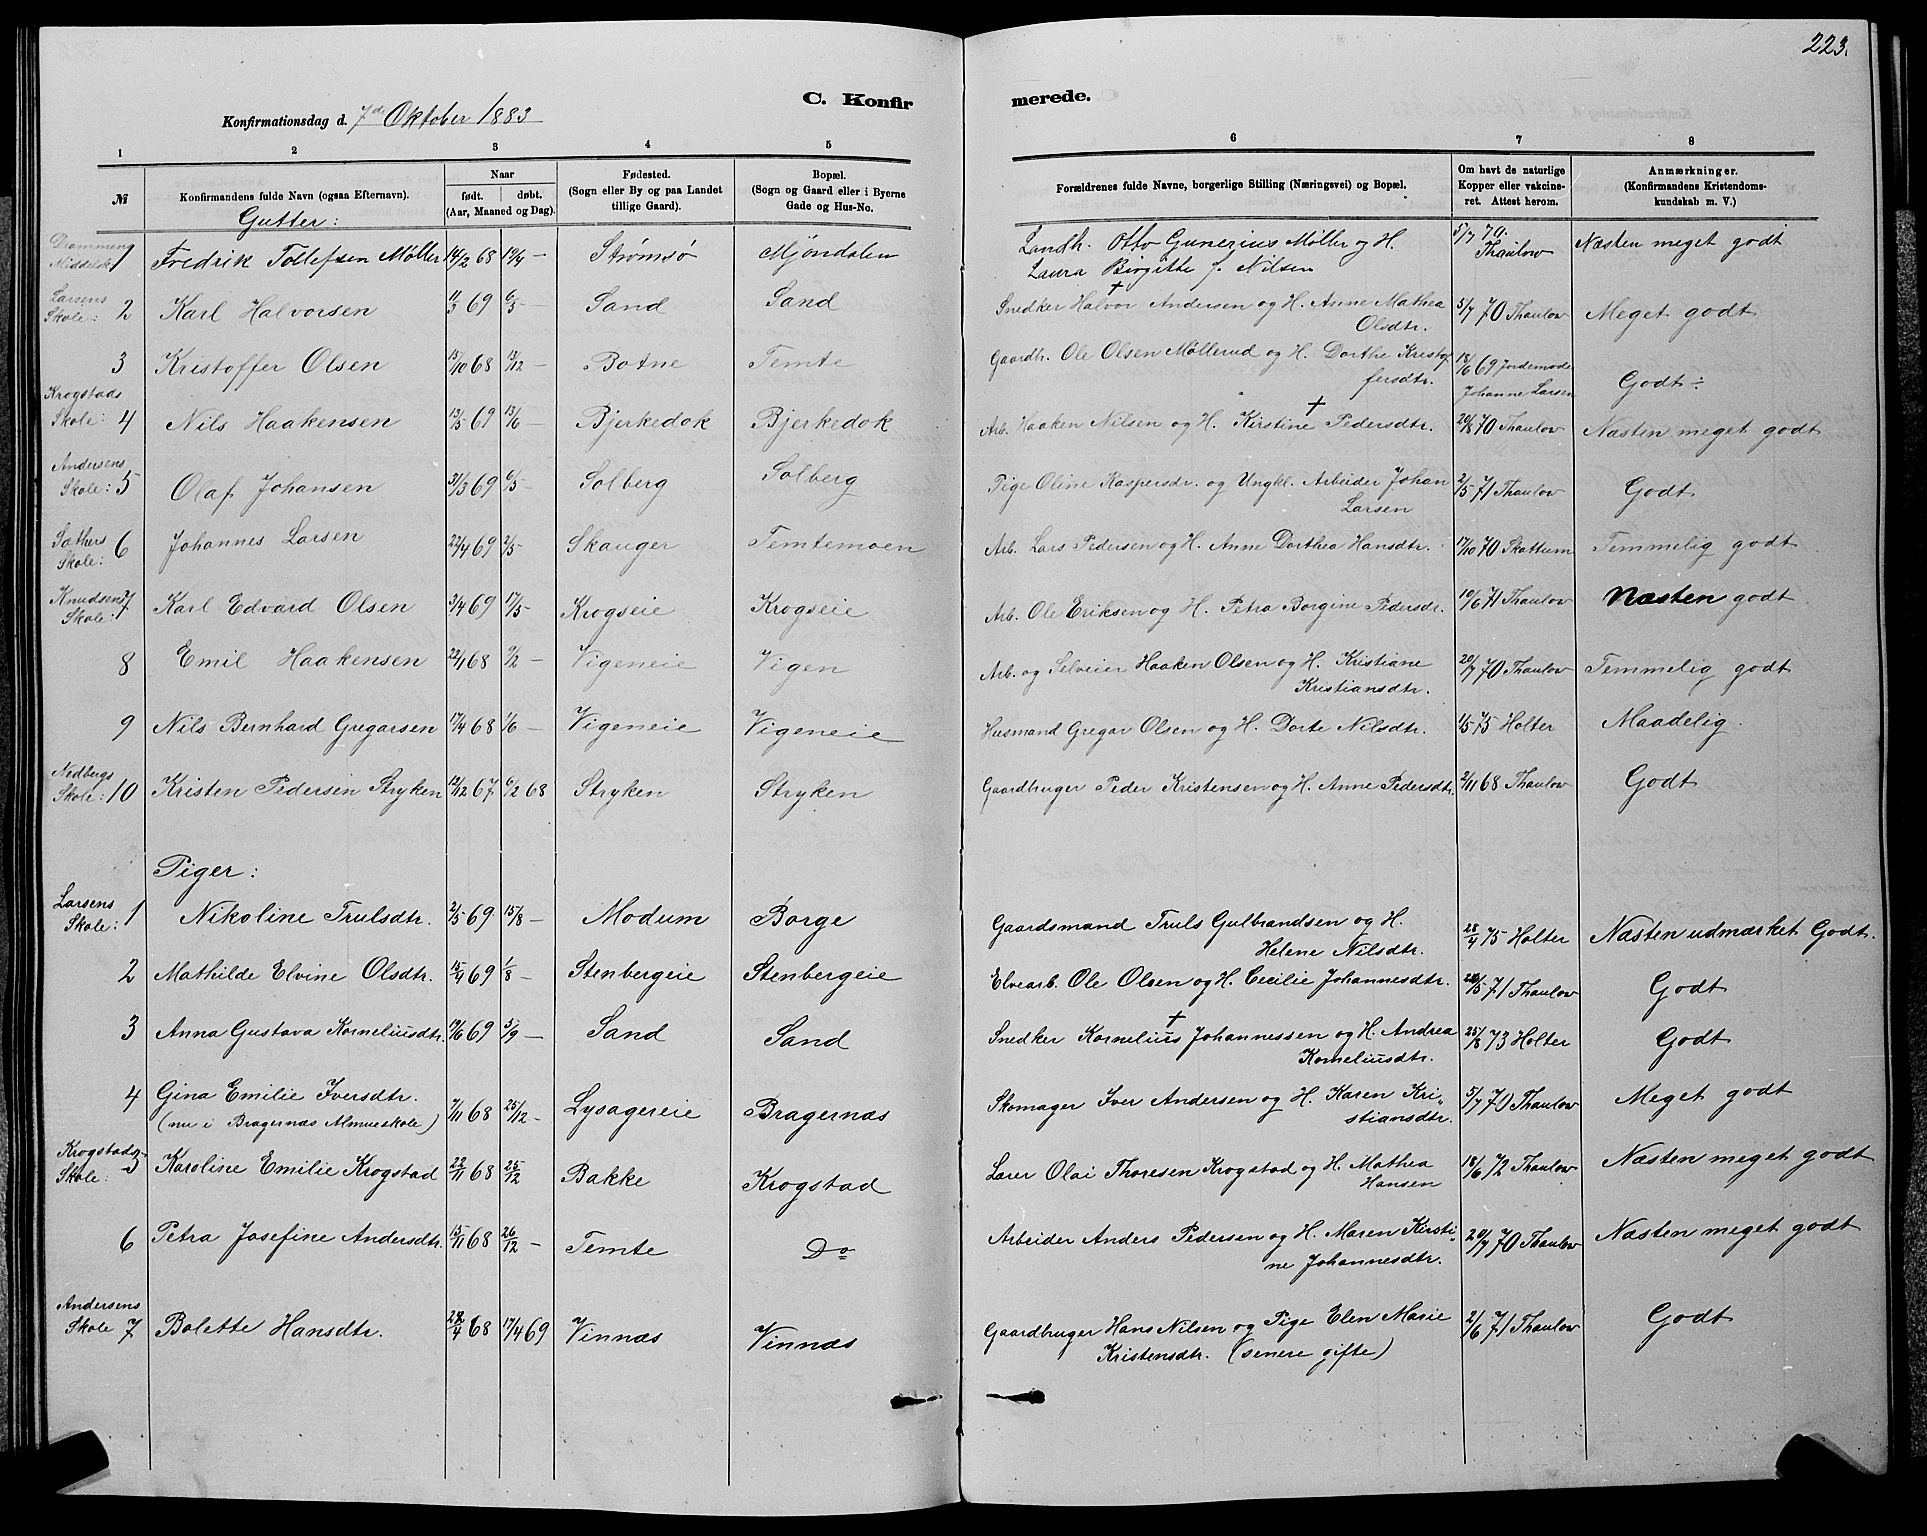 223.
C. Konfirmerede.
Konfirmationsdag d. 7de Oktober 1883
1 2 3 4 5 6 7 8
№ | Konfirmandens fulde Navn (ogsaa Efternavn). | Naar født. døbt. (Aar, Maaned og Dag). | Fødested. (Sogn eller By og paa Landet tillige Gaard). | Bopæl. (Sogn og Gaard eller i Byerne Gade og Hus-No. | Forældrenes fulde Navne, borgerlige Stilling (Næringsvei) og Bopæl. | Om havt de naturlige Kopper eller vakcineret. Attest herom. | Anmærkninger. (Konfirmandens Kristendomskundskab m. V.)
Gutter:
Drammens Middelsk. 1 | Fredrik Tollefsen Møller | 14/2 68 | 19/4 — | Strømsø | Mjöndalen | Landh. Otto Gunerius Møller og H. Laura Birgitte f. Nilsen | 5/7 70. Thaulow | Næsten meget godt
Larsens Skole: 2 | Karl Halvorsen | 11/3 69 | 6/5 — | Sand | Sand | Snedker Halvor † Andersen og H. Anne Mathea Olsdtr. | 5/7 70 Thaulow | Meget godt
3 | Kristoffer Olsen | 15/10 68 | 13/12 — | Botne | Temte | Gaardbr. Ole Olsen Møllerud og H. Dorthe Kristoffersdtr. | 18/6 69 Jordemode Johanne Larsen | Godt ÷
Krogstads Skole: 4 | Nils Haakensen | 13/5 69 | 13/6 — | Bjerkedok | Bjerkedok | Arb. Haaken Nilsen og H. Kirstine † Pedersdtr. | 20/8 70 Thaulow | Næsten meget godt
Andersens Skole: 5 | Olaf Johansen | 31/3 69 | 6/5 — | Solberg | Solberg | Pige Oline Kaspersdr. og Ungkl. Arbeider Johan Larsen | 2/5 71 Thaulow | Godt
Sæthers Skole: 6 | Johannes Larsen | 22/4 69 | 2/5 — | Skauger | Temtemoen | Arb. Lars Pedersen og H. Anne Dorthea Hansdtr. | 17/10 70 Skattum | Temmelig godt
Knudsens Skole: 7 | Karl Edvard Olsen | 3/4 69 | 17/5 — | Krogseie | Krogseie | Arb. Ole Eriksen og H. Petra Borgine Pedersdr. | 10/6 71 Thaulow | Næsten godt
8 | Emil Haakensen | 22/1 68 | 9/2 — | Vigeneie | Vigen | Arb. og Selveier Haaken Olsen og H. Kristiane Kristiansdtr. | 20/7 70 Thaulow | Temmelig godt
9 | Nils Bernhard Gregarsen | 17/4 68 | 1/6 — | Vigeneie | Vigeneie | Husmand Gregar Olsen og H. Dorte Nilsdtr. | 1/5 75 Holter | Maadelig.
Nedbergs Skole: 10 | Kristen Pedersen Stryken | 12/12 67 | 6/2 68 | Stryken | Stryken | Gaardbruger Peder Kristensen og H. Anne Pedersdtr. | 2/11 68 Thaulow | Godt
Piger:
Larsens Skole: 1 | Nikoline Trulsdtr. | 2/5 69 | 15/8 — | Modum | Borge | Gaardsmand Truls Gulbrandsen og H. Helene Nilsdtr. | 28/4 75 Holter | Næsten udmærket Godt.
2 | Mathilde Elvine Olsdtr. | 15/4 69 | 1/8 — | Stenbergeie | Stenbergeie | Elvearb. Ole Olsen og H. Cecilie Johannesdtr. | 20/5 71 Thaulow | Godt
3 | Anna Gustava Korneliusdtr. | 19/6 69 | 5/9 — | Sand | Sand | Snedker Kornelius † Johannessen og H. Andrea Korneliusdtr. | 25/8 73 Holter | Godt
4 | Gina Emilie Iversdtr. (nu i Bragernæs Almueskole) | 7/11 68 | 25/12 — | Lysagereie | Bragernæs | Skomager Iver Andersen og H. Karen Kristiansdtr. | 5/7 70 Thaulow | Meget godt
Krogstads Skole: 5 | Karoline Emilie Krogstad | 22/11 68 | 25/12 | Bakke | Krogstad | Lærer Olai Thoresen Krogstad og H. Mathea Hansen | 18/6 72 Thaulow | Næsten meget godt
6 | Petra Josefine Andersdtr. | 15/11 68 | 26/12 — | Temte | Do | Arbeider Anders Pedersen og H. Maren Kirstine Johannesdtr. | 20/7 70 Thaulow | Næsten meget godt
Andersens Skole 7 | Bolette Hansdtr. | 28/4 68 | 17/4 69 | Vinnæs | Vinnæs | Gaardbruger Hans Nilsen og Pige Elen Marie Kristensdtr. (senere gifte) | 2/6 71 Thaulow | Godt